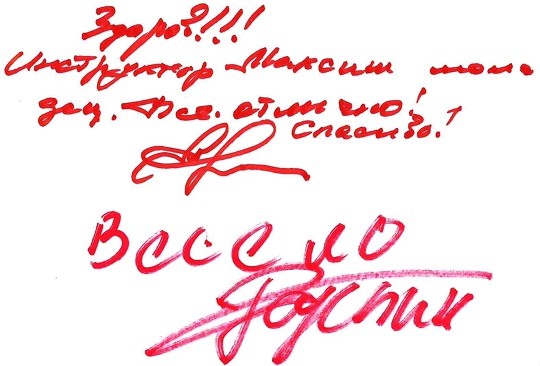 Здорово!!!
Инструктор Максим моло
дец. Все отлично!
Спасибо!
Весело